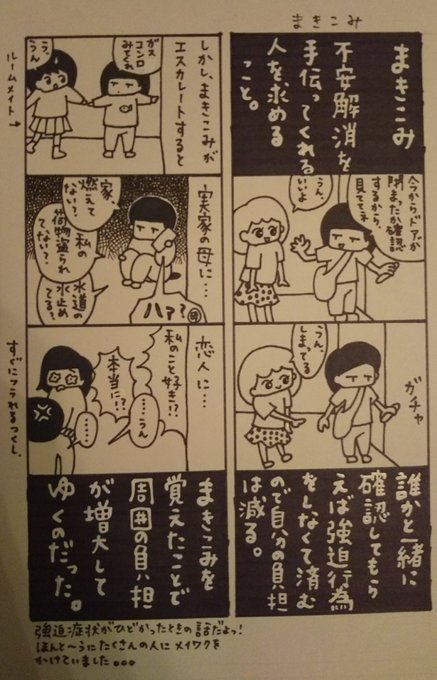 まきこみ
まきこみ
不安解消を
手伝ってくれる
人を求める
こと。
今からドアが
閉まったか確認
するから、
見ててネ
うん、
いいよ
ガチャ
うん、
しまってる
誰かと一緒に
確認してもら
えば強迫行為
をしなくて済む
ので自分の負担
は減る。
しかし、まきこみが
エスカレートすると
ガス
コンロ
みてくれ
う、
うん
ルームメイト→
実家の母に…
家、
燃えて
ない?
私の
荷物盗られ
てない?
水道の
水止め
てる?
ハァ?
母
恋人に…
私のこと好き!?
……うん
本当に!?
……
すぐにフラれるつくし。
まきこみを
覚えたことで
周囲の負担
が増大して
ゆくのだった。
強迫症状がひどかったときの話だよっ!
ほんと〜うにたくさんの人にメイワクを
かけていました。。。